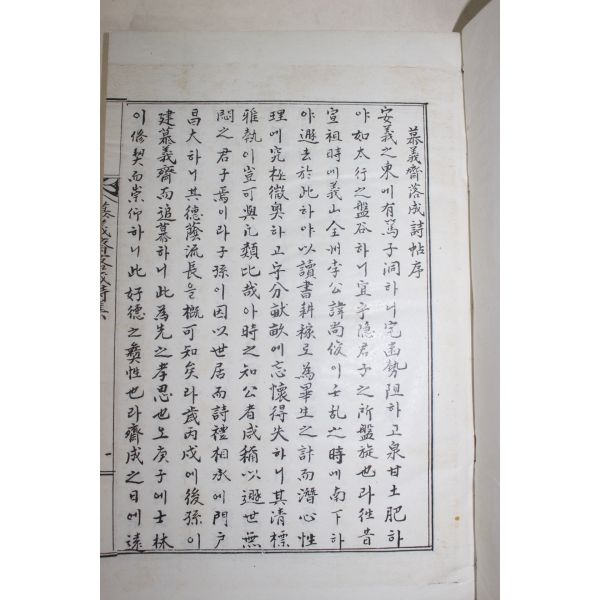 慕義齋落成詩帖序
安義之東에有篤子洞하니宅幽勢阻하고泉甘土肥하
야如太行之盤谷하니宜乎隱君子之所盤旋也라徃昔
宣祖時에義山全州李公諱尚俊이壬亂之時에南下하
야遯去於此하야以讀書耕稼로為畢生之計而潛心性
理에究極微奧하고宇分畎畝에忘懷得失하니其清標
雅執이豈可與凡類比哉아時之知公者咸稱以遯世無
悶之君子焉이라子孫이因以世居而詩禮相承에門戶
昌大하니其德蔭流長을槪可知矣라歲丙戌에後孫이
建慕義齋而追慕하니此為先之孝思也오庚子에士林
이修契而崇仰하니此好德之彝性也라齋成之日에遠
慕義齋落成詩集
一